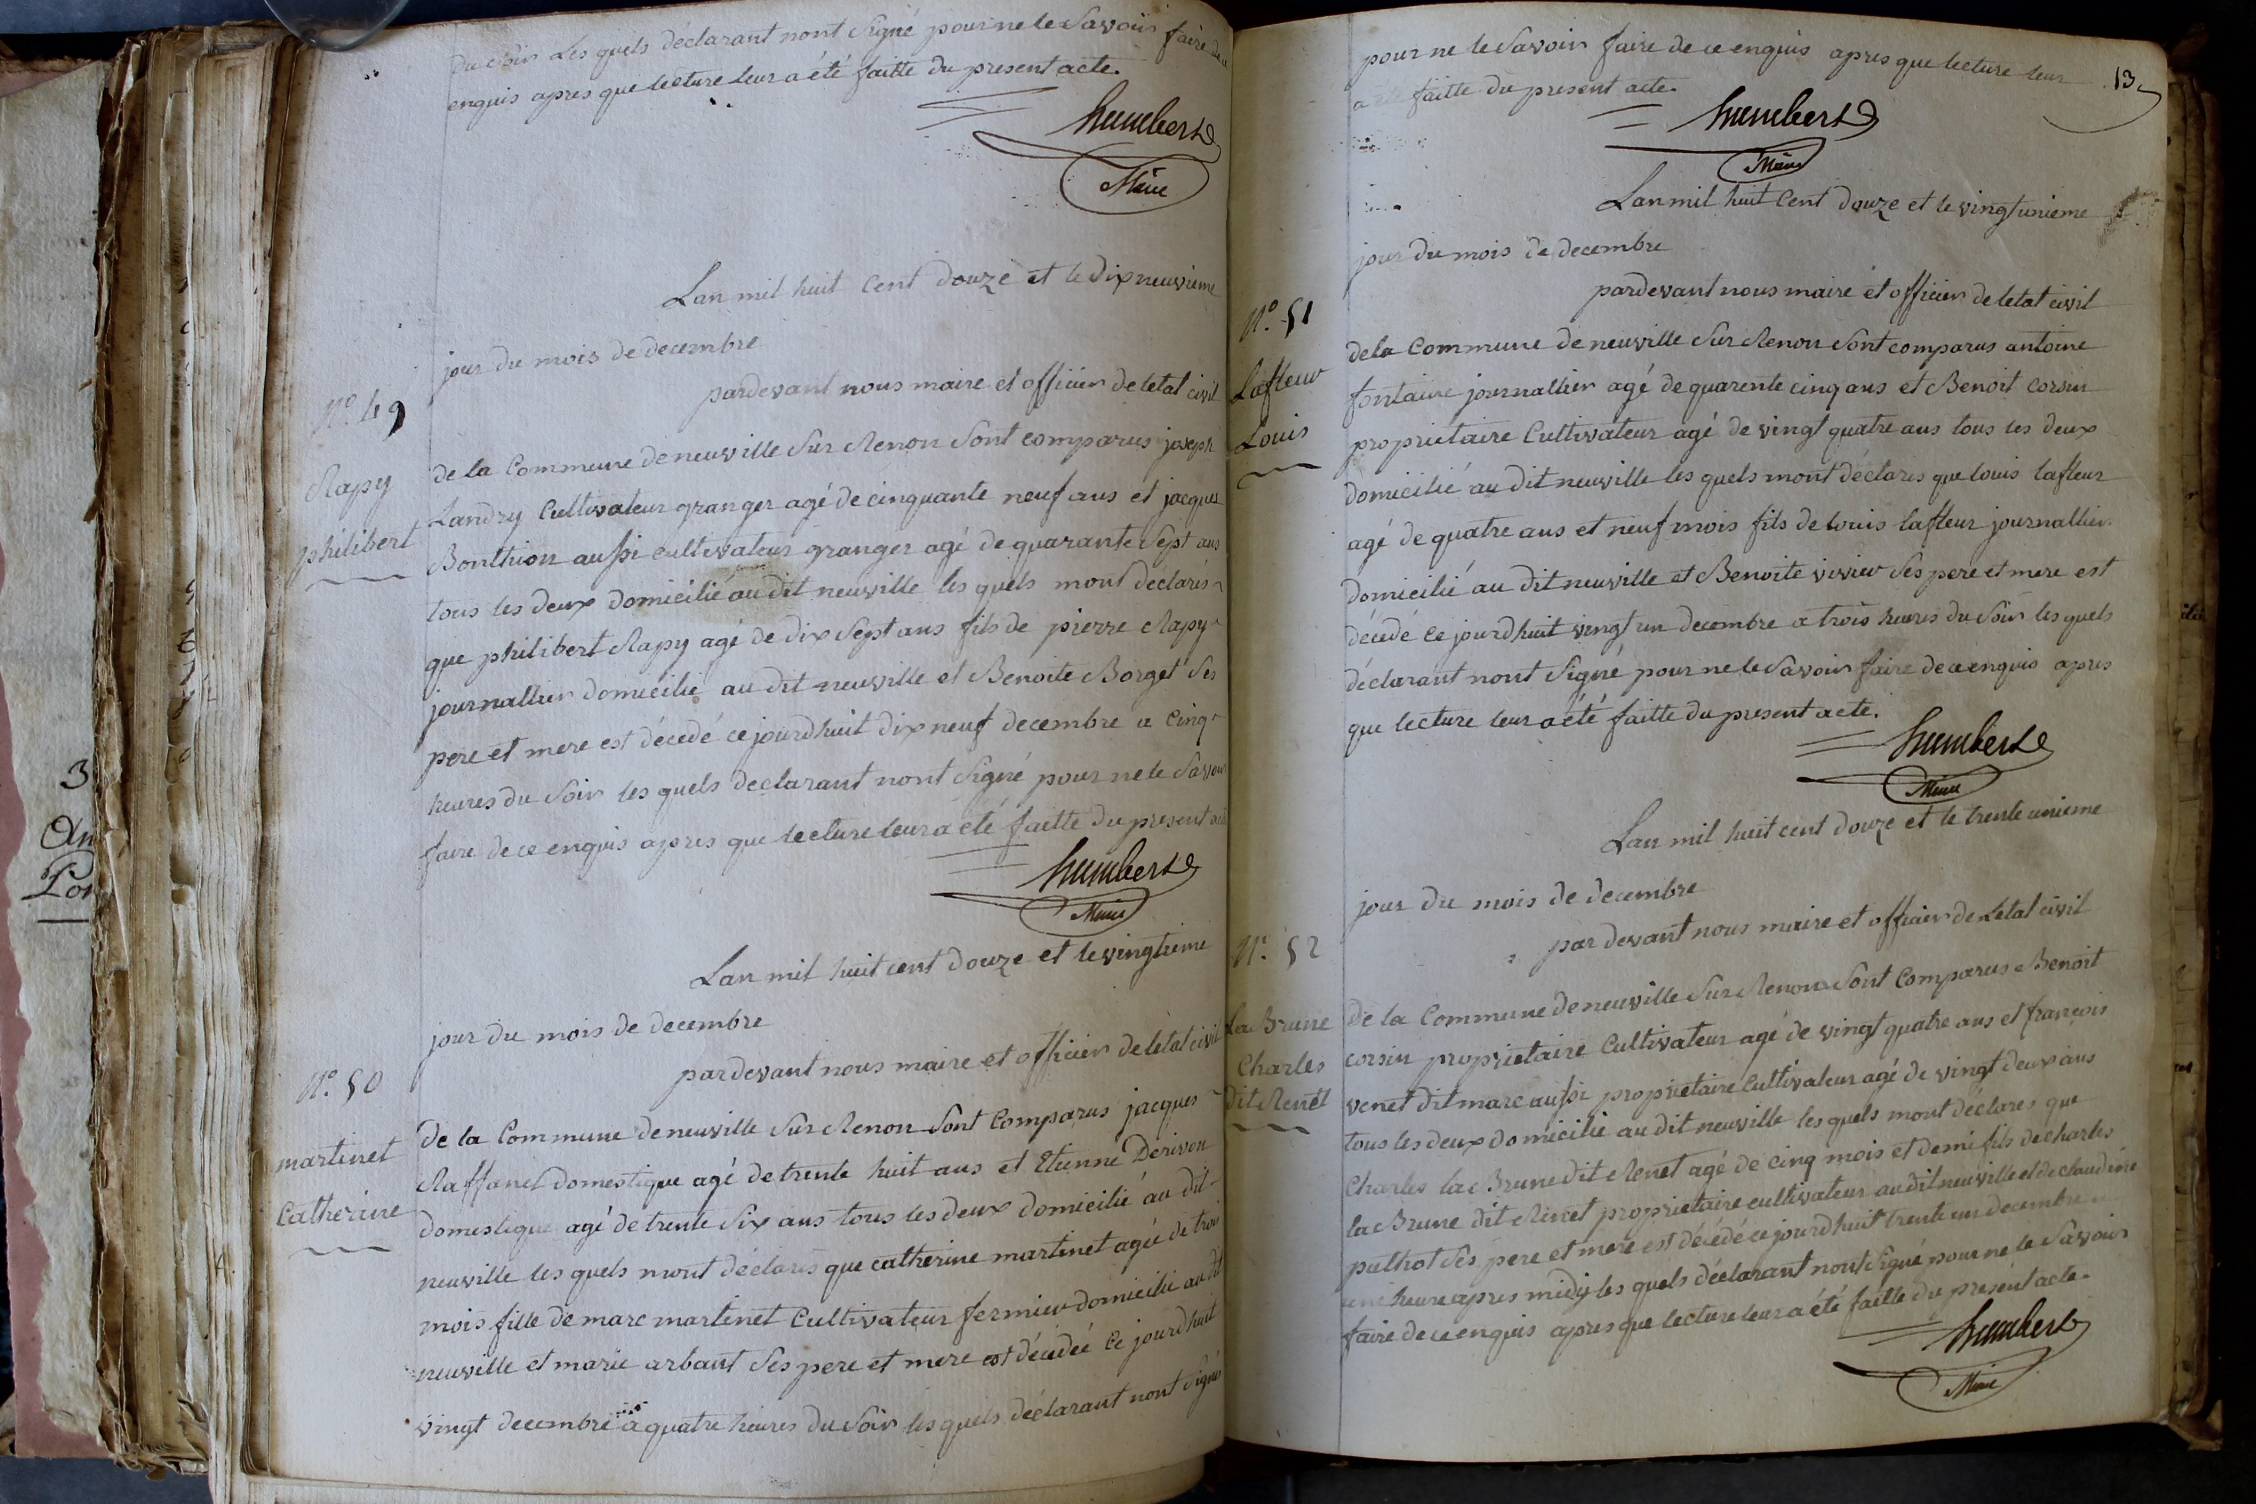 du soir Les quels déclarant nont Signé pour ne le Savoir faire de ce
enquis apres que lecture leur a été faitte du present acte.
humbert
Maire
Lan mil huit Cent douze et le dix neuvieme
jour du mois de decembre
pardevant nous maire et officier de letat civil
N.º 49
Rapy
philibert
de la Commune de neuville Sur Renon Sont comparus joseph
Landry Cultivateur granger agé de cinquante neuf ans et jacques
Bonthion aussi cultivateur granger agé de quarante Sept ans
tous les deux domicilié au dit neuville les quels mont déclarés
que philibert Rapy agé de dix Sept ans fils de pierre Rapy
journallier domicilié au dit neuville et Benoite Borget Ses
pere et mere est décedé ce jourdhuit dix neuf decembre a Cinq
heures du Soir les quels declarant nont Signé pour ne le Savoir
faire de ce enquis apres que lecture leur a été faitte du present
humbert
Maire
Lan mil huit cent douze et le vingtieme
jour du mois de decembre
pardevant nous maire et officier de létat civil
N.º 50
martinet
Catherine
de la Commune de neuville Sur Renon Sont Comparus jacques
Raffanel domestique agé de trente huit ans et Etienne Derivon
domestique agé de trente Six ans tous les deux domicilié au dit
neuville les quels mont déclarés que catherine martinet agée de trois
mois fille de marc martinet Cultivateur fermier domicilié au dit
neuville et marie arbant Ses pere et mere est décedée Ce jourdhuit
vingt decembre a quatre heures du Soir les quels déclarant nont Signé
13
pour ne le Savoir faire de ce enquis apres que lecture leur
a faitte du present acte.
humbert
Maire
Lan mil huit Cent douze et le vingt unieme
jour du mois de decembre
pardevant nous maire et officier de letat civil
N.º 51
Lafleur
Louis
de la Commune de neuville Sur Renon Sont comparus antoine
fontaine journallier agé de quarente cinq ans et Benoit corsin
proprietaire Cultivateur agé de vingt quatre ans tous les deux
domicilié au dit neuville les quels mont déclarés que louis lafleur
agé de quatre ans et neuf mois fils de louis lafleur journallier
domicilié au dit neuville et Benoite vivier Ses pere et mere est
décedé Ce jourdhuit vingt un decembre a trois heures du Soir les quels
déclarant nont Signé pour ne le Savoir faire de ce enquis apres
que lecture leur a été faitte du present acte.
humbert
Maire
Lan mil huit cent douze et le trente unieme
jour du mois de decembre
par devant nous maire et officier de Letat civil
N.º 52
La Brune
Charles
dit Renet
De la Commune de neuville Sur Renon Sont Comparus Benoit
corsin proprietaire Cultivateur agé de vingt quatre ans et françois
venet dit marc aussi proprietaire Cultivateur agé de vingt deux ans
tous les deux domicilié au dit neuville les quels mont déclarés que
Charles la Brune dit Renet agé de cinq mois et demi fils de charles
la Brune dit Rinet proprietaire cultivateur au dit neuville et de claudine
puthot Ses pere et mere est décedé ce jourdhuit trente un decembre
une heure apres midy les quels déclarant nont Signé pour ne le Savoir
faire de ce enquis apres que lecture leur a été faitte du present acte.
humbert
Maire